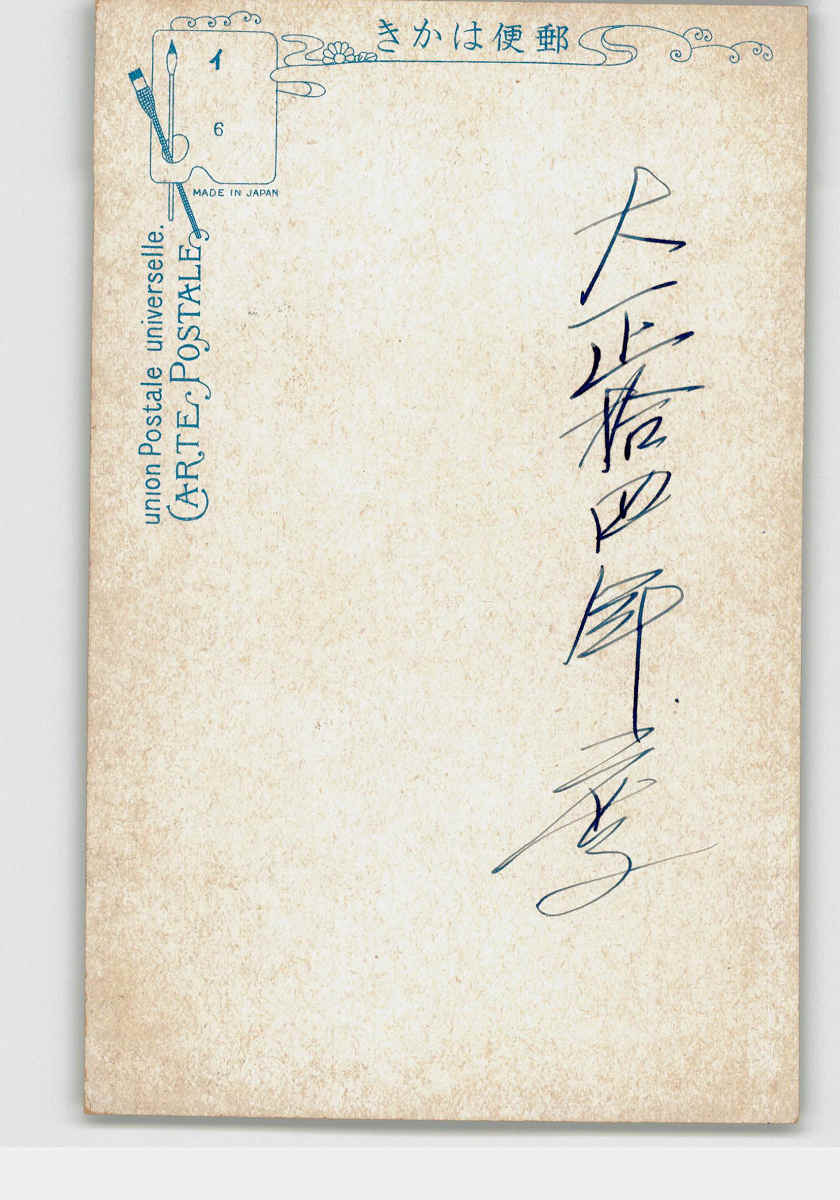 郵便はかき
イ
6
MADE IN JAPAN
union Postale universelle.
CARTE POSTALE
大正拾四年